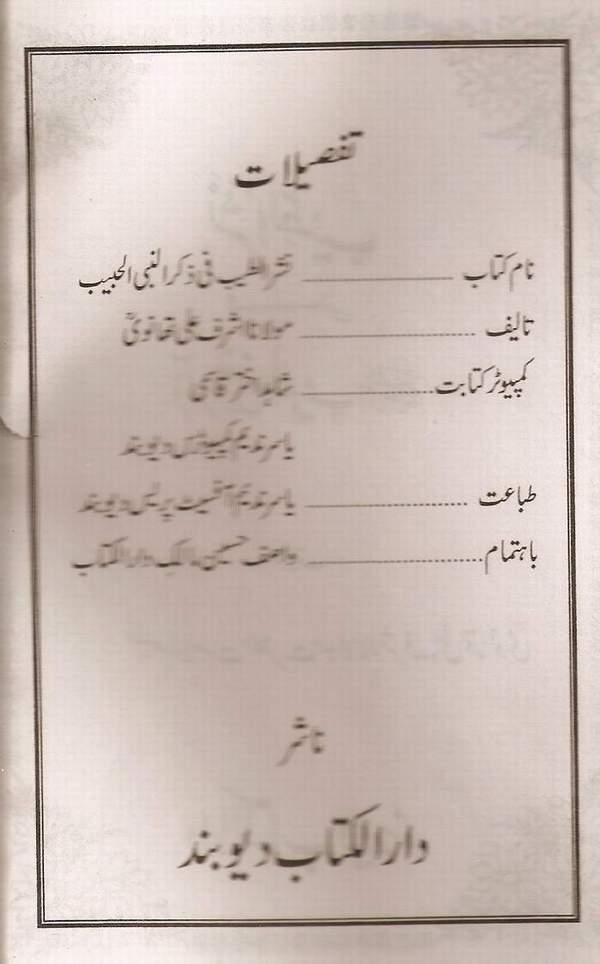 تفصیلات
نام کتاب ........................ نشر الطیب فی ذکر النبی الحبیب
تالیف ........................ مولانا اشرف علی تھانویؒ
کمپیوٹر کتابت ........................ شاہد اختر قاسمی
یاسر ندیم کمپیوٹرس دیوبند
طباعت ........................ یاسر ندیم آفسیٹ پریس دیوبند
باہتمام ........................ واصف حسین مالک دارالکتاب
ناشر
دارالکتاب دیوبند